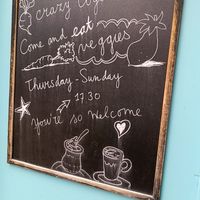 crazy
Come and eat
veggies
Thursday - Sunday
17.30
You're so welcome